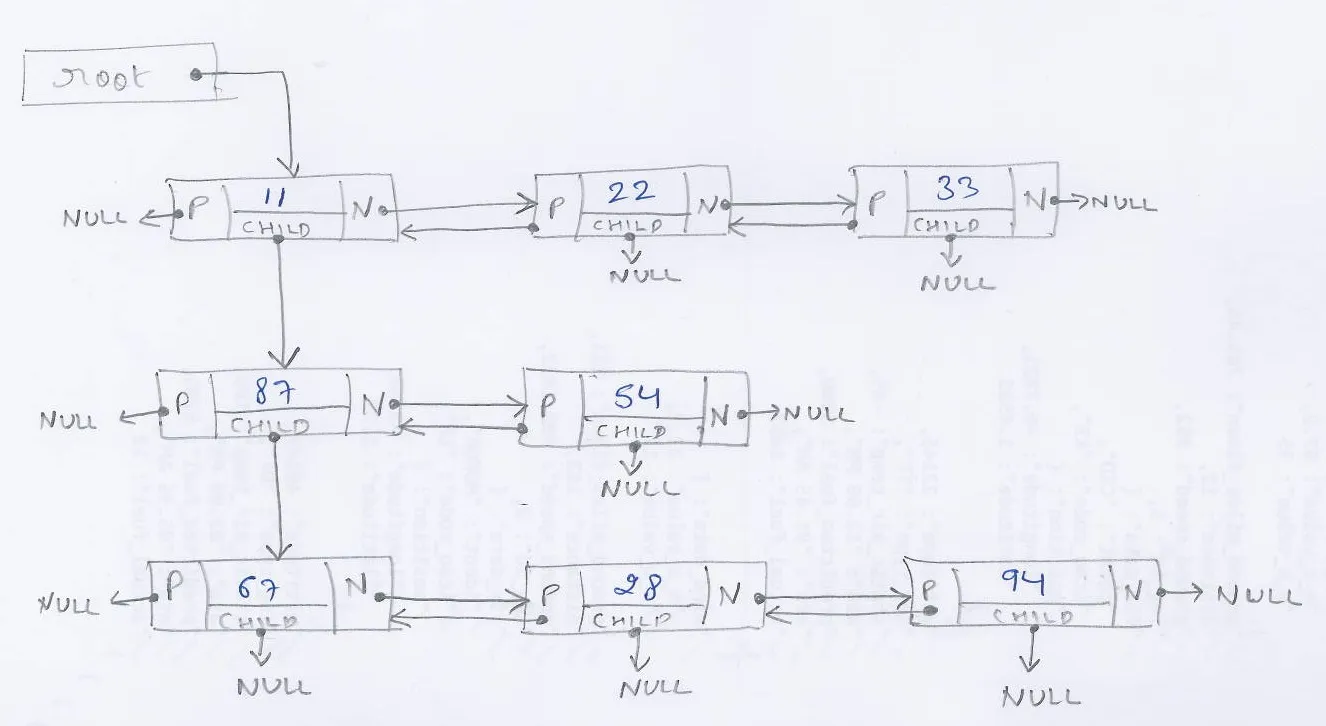 root
P 11 N P 22 N P 33 N NULL
NULL CHILD CHILD CHILD
NULL NULL
P 87 N P 54 N NULL
NULL CHILD CHILD
NULL
P 67 N P 28 N P 94 N NULL
NULL CHILD CHILD CHILD
NULL NULL NULL